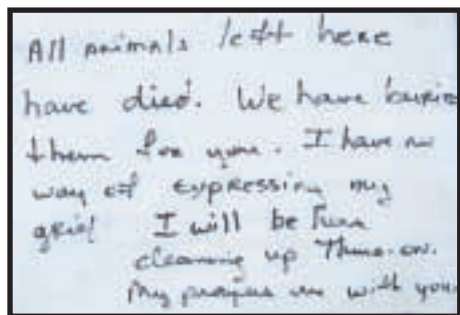 All animals left here
have died. We have burie
them for you. I have no
way of expressing my
grief I will be here
cleaning up Thurs-on.
My prayers are with you.